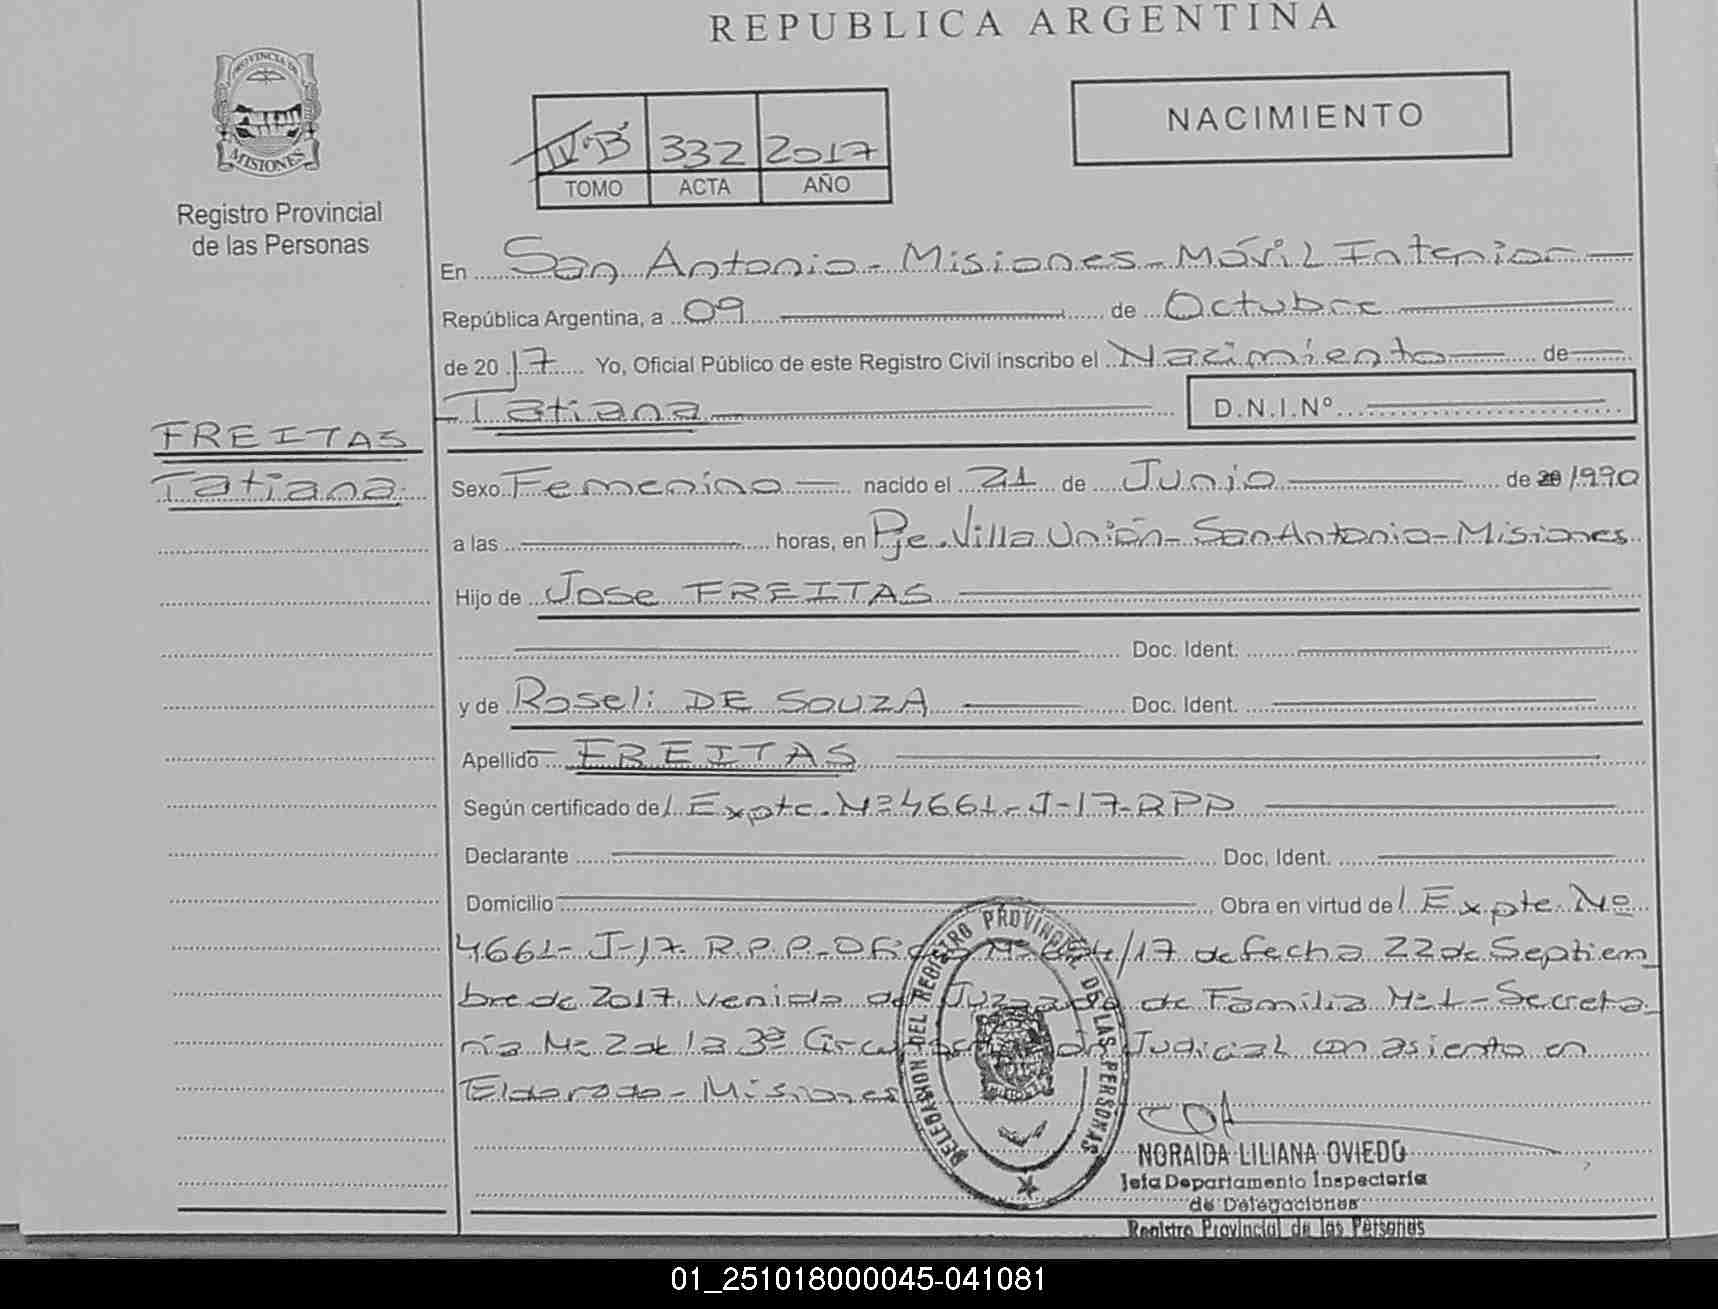 REPUBLICA ARGENTINA
PROVINCIA DE
MISIONES
Registro Provincial
de las Personas
NACIMIENTO
IVºB 332 2017
TOMO ACTA AÑO
En San Antonio - Misiones - Móvil Interior
República Argentina, a 09 de Octubre
de 2017 Yo, Oficial Público de este Registro Civil inscribo el Nacimiento de
Tatiana D.N.I.Nº
FREITAS
Tatiana
Sexo Femenino nacido el 21 de Junio de 20 /1990
a las horas, en Pje. Villa Unión - San Antonio - Misiones
Hijo de Jose FREITAS
Doc. Ident.
y de Roseli DE SOUZA Doc. Ident.
Apellido FREITAS
Según certificado de / Expte. Nº 4661 - J - 17 - RPP
Declarante Doc. Ident.
Domicilio Obra en virtud de / Expte Nº
4661 - J - 17 R.P.P. - Oficio Nº /17 de fecha 22 de Septiem
bre de 2017 venido del Juzgado de Familia Nº 1 - Secreta
ría Nº 2 de la 3ª Circunscripción Judicial con asiento en
Eldorado - Misiones
DELEGACION DEL REGISTRO PROVINCIAL DE LAS PERSONAS
NORAIDA LILIANA OVIEDO
Jefa Departamento Inspectoria
de Delegaciones
Registro Provincial de las Personas
01_251018000045-041081